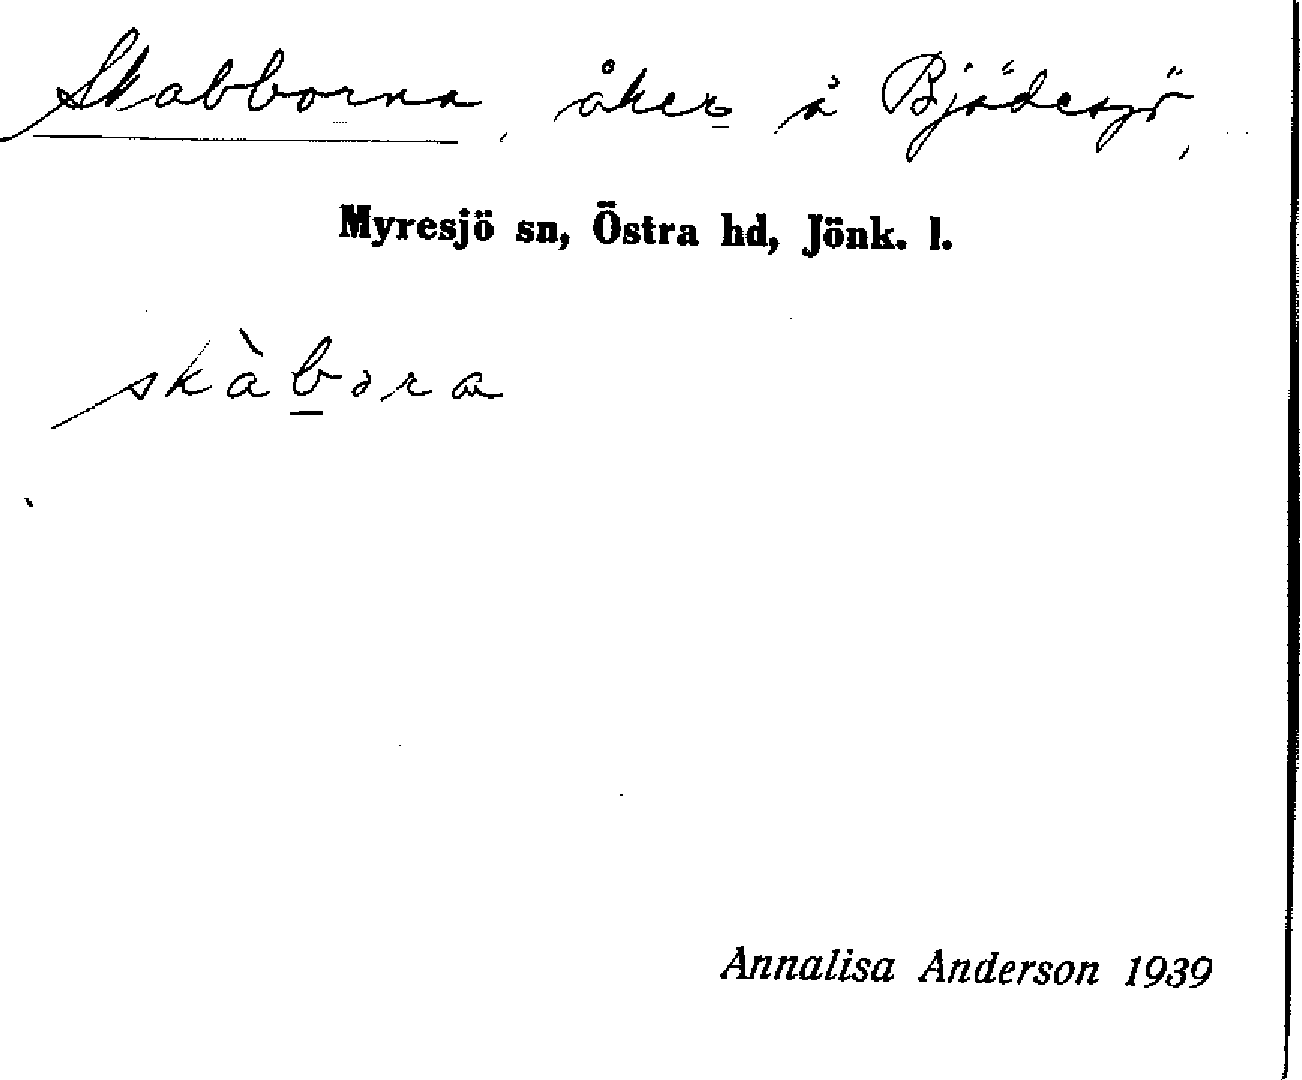 Skabborna, åker å Bjädesjö,
Myresjö sn, Östra hd, Jönk. l.
skàbəra
Annalisa Anderson 1939